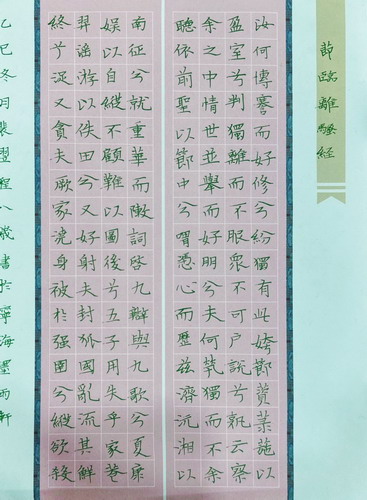 節臨離騷經
汝何博謇而好修兮紛獨有此姱節薋菉葹以
盈室兮判獨離而不服眾不可戶說兮孰云察
余之中情世並舉而好朋兮夫何煢獨而不余
聽依前聖以節中兮喟憑心而歷茲濟沅湘以
南征兮就重華而敶詞啓九辯與九歌兮夏康
娛以自縱不顧難以圖後兮五子用失乎家巷
羿滛游以佚田兮又好射夫封狐國亂流其鮮
終兮浞又貪夫厥家澆身被於强圉兮縱欲殺
乙巳冬月裴翌程八歲書於寧海墨雨軒